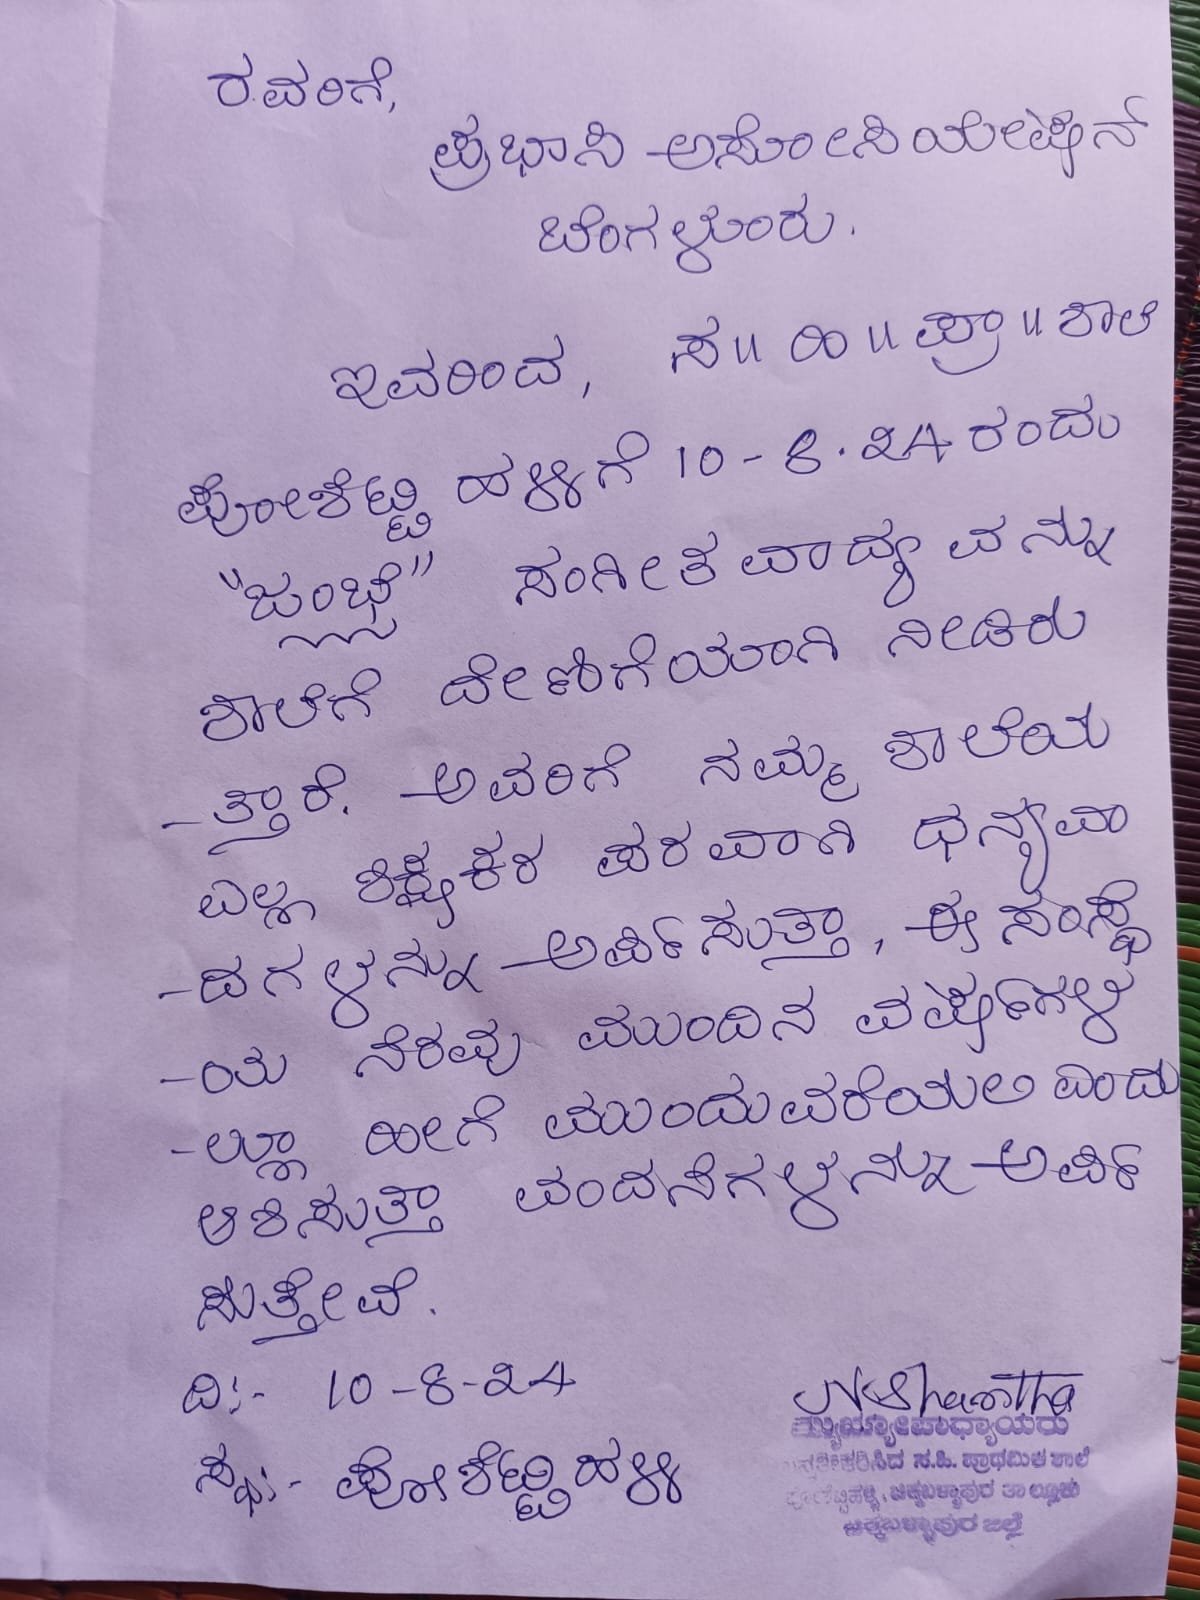 ರವರಿಗೆ,
ಪ್ರಭಾಸಿ ಅಸೋಸಿಯೇಷನ್
ಬೆಂಗಳೂರು.
ಇವರಿಂದ, ಸ॥ ಹಿ॥ ಪ್ರಾ॥ ಶಾಲೆ
ಪೋಶೆಟ್ಟಿ ಹಳ್ಳಿಗೆ 10-8.24 ರಂದು
"ಜಂಭೆ" ಸಂಗೀತ ವಾದ್ಯವನ್ನು
ಶಾಲೆಗೆ ದೇಣಿಗೆಯಾಗಿ ನೀಡಿರು
-ತ್ತಾರೆ. ಅವರಿಗೆ ನಮ್ಮ ಶಾಲೆಯ
ಎಲ್ಲಾ ಶಿಕ್ಷಕರ ಪರವಾಗಿ ಧನ್ಯವಾ
-ದಗಳನ್ನು ಅರ್ಪಿಸುತ್ತಾ, ಈ ಸಂಸ್ಥೆ
-ಯ ನೆರವು ಮುಂದಿನ ವರ್ಷಗಳ
-ಲ್ಲೂ ಹೀಗೆ ಮುಂದುವರೆಯಲಿ ಎಂದು
ಆಶಿಸುತ್ತಾ ವಂದನೆಗಳನ್ನು ಅರ್ಪಿ
ಸುತ್ತೇವೆ.
ದಿ:- 10-8-24
ಸ್ಥಳ:- ಪೋಶೆಟ್ಟಿಹಳ್ಳಿ
N Shantha
ಮುಖ್ಯೋಪಾಧ್ಯಾಯರು
ಸ.ಹಿ. ಪ್ರಾಥಮಿಕ ಶಾಲೆ
ಪೋಶೆಟ್ಟಿಹಳ್ಳಿ, ಚಿಕ್ಕಬಳ್ಳಾಪುರ ತಾಲ್ಲೂಕು
ಚಿಕ್ಕಬಳ್ಳಾಪುರ ಜಿಲ್ಲೆ